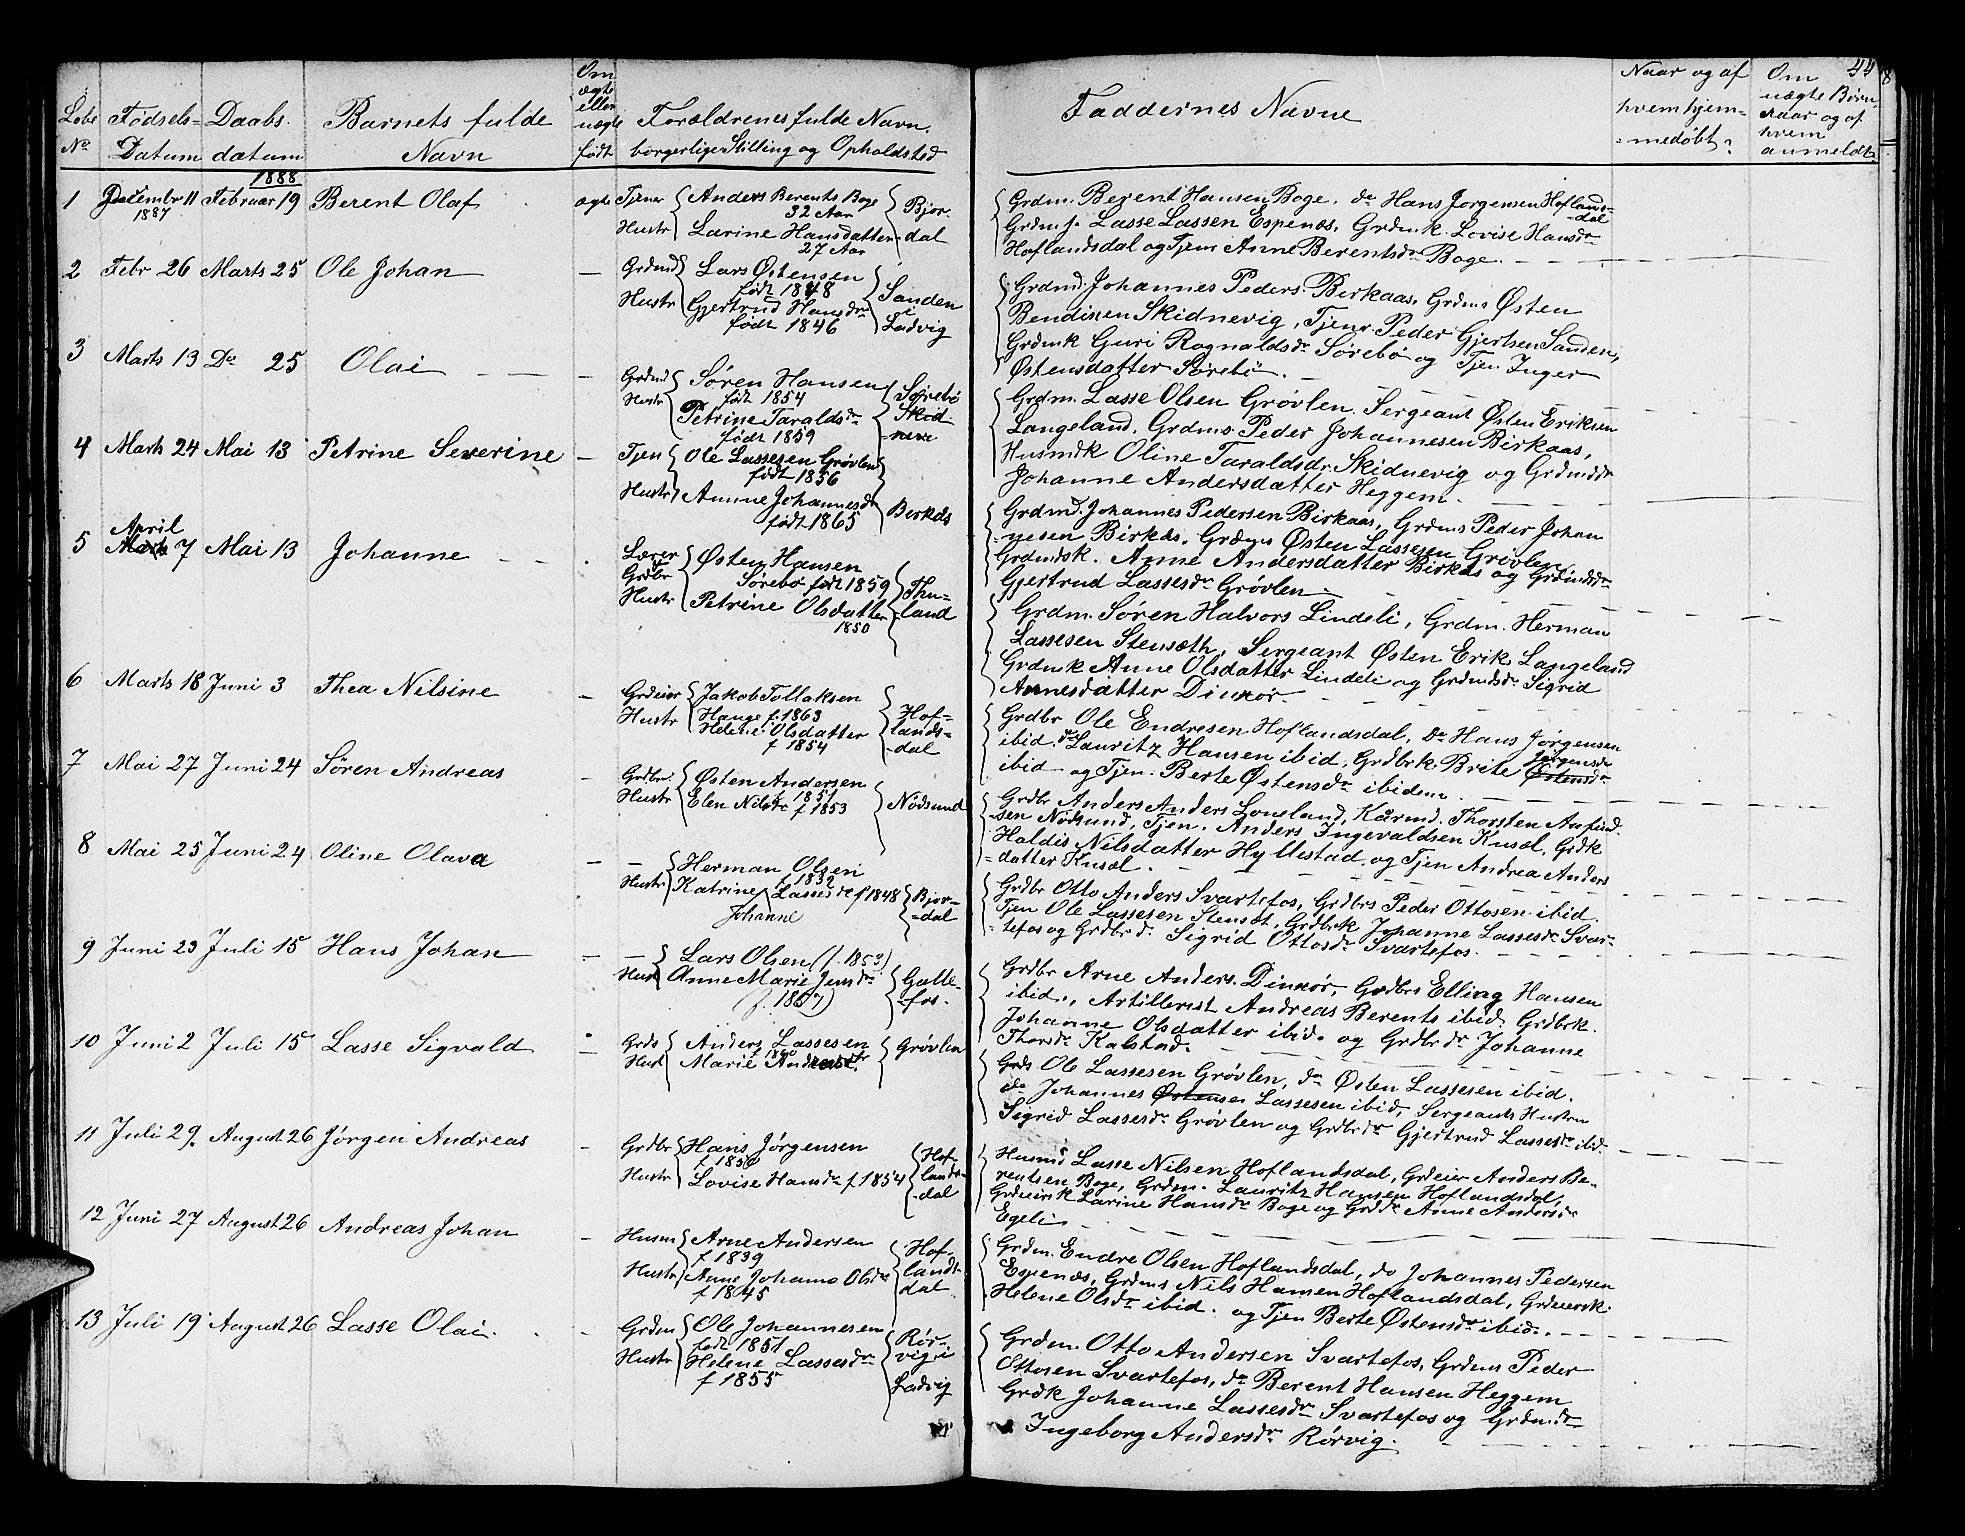 44
Løbe No
Fødsels= Datum
Daabs. datum
Barnets fulde Navn
Om ægte eller uægte født
Forældrenes fulde Navn. borgerlige Stilling og Opholdsted
Faddernes Navne
Naar og af hvem hjem= =medøbt?
Om uægte Børn, naar og af hvem anmeldt
1888
1 Decembr 11 1887 Februar 19 Berent Olaf ægte
Tjener Anders Berents Boge
32 Aar
Hustr Larine Hansdatter
27 Aar
Bjor-
dal
Grdm. Berent Hansen Boge, do Hans Jørgensen Hoflands=
=dal
Lasse Lassen Espenæs, Grdmk. Lovise Hansdr
Hoflandsdal og Tjen Anne Berentsdr Boge.
2 Febr 26 Marts 25 Ole Johan —
Grdmd Lars Østensen
født 1848
Hustr Gjertrud Hansdr
født 1846
Sanden
i
Ladvig
Grdmd. Johannes Peders. Birkaas, Grdms Østen
Bendixen Skidnevig, Tjenr. Peder Gjertsen Sanden,
Grdmk Guri Ragnaldsdr Sørebø og Tjen Inger
Østensdatter Sørebø.
3 Marts 13 Do 25 Olai —
Grdmd Søren Hansen
født 1854
Hustr Petrine Taraldsdr
født 1859
Sørebø
Skid-
Grdm. Lasse Olsen Grøvlen, Sergeant Østen Eriksen
Langeland, Grdms. Peder Johannesen Birkaas,
Husmdk Oline Taraldsdr. Skidnevig og Grdmdr
Johanne Andersdatter Heggem.
4 Marts 24 Mai 13 Petrine Severine —
Tjen Ole Lassesen Grøvlen
født 1856
Hustr Anne Johannesdr
født 1865
Berkås
Grdmd. Johannes Pedersen Birkaas, Grdms Peder Johan
nesen Birkås, Grdms Østen Lassesen Grøvlen
Grdmdsk. Anne Andersdatter Birkås og Grdmdsdr
Gjertrud Lassesdr Grøvlen
April
5 Marts 7 Mai 13 Johanne
Lærer Østen Hansen
Grdbr Sørebø født 1859
Hustr Petrine Olsdatter
1850
Thu=
land
Grdm. Søren Halvors Lindeli, Grdm. Herman
Lassesen Stensæth, Sergeant Østen Erik. Langeland
Grdmk Anne Olsdatter Lindeli og Grdmdsdr. Sigrid
Annesdatter Dinnør
6 Marts 18 Juni 3 Thea Nilsine —
Grdeier Jakob Tollaksen
Hustr Hauge f. 1863
Helene Olsdatter
f 1854
Hof=
lands=
-dal
Grdbr Ole Endresen Hoflandsdal, do Hans Jørgensen
ibid. do Lauritz Hansen ibid, Grdbrk. Brite Østensdr Jørgensdr
ibid og Tjen. Berte Østensdr ibidem
7 Mai 27 Juni 24 Søren Andreas —
Grdbr. Østen Andersen
f. 1851
Hustr Elen Nilsdr f 1853
Nødsund
Grdbr Anders Anders Loneland, Kaarmd. Thorsten Anfind
sen Nødsund, Tjen. Anders Ingevaldsen Kusæl, Grdk
Haldis Nilsdatter Hyllestad og Tjen Andrea Anders
=datter Kusæl.
8 Mai 25 Juni 24 Oline Olava —
— Herman Olsen
f 1832
Hustr Katrine Johanne Lassesdr f 1848
Bjor-
=dal
Grdbr Otto Anders Svartefos, Grdbrs Peder Ottosen ibid.
Tjen Ole Lassesen Stensæt, Grdbrk Johanne Lassesdr Svar-
-tefos og Grdbrdr. Sigrid Ottosdr Svartefos.
9 Juni 23 Juli 15 Hans Johan —
— Lars Olsen (f. 1853)
Hust Anne Marie Jensdr
Galle-
-fos.
Grdbr Arne Anders. Dinnør, Grdbrs Elling Hansen
ibid., Artillerist Andreas Berents ibid. Grdbrk.
Johanne Olsdatter ibid. og Grdbrdr Johanne
Thorsdr Kalstad.
10 Juni 2 Juli 15 Lasse Sigvald —
Grds Anders Lassesen
Hust Marie
Grøvlen
Grds Ole Lassesen Grøvlen, do Østen Lassesen ibid.
do Johannes Østensen Lassesen ibid, Sergeants Hustru
Sigrid Lassesdr Grøvlen og Grdbrdr Gjertrud Lassesdr ibid.
11 Juli 29. August 26 Jørgen Andreas -
Grdbr Hans Jørgensen
f 1850
Hustr Lovise Hansdr f 1854
Hof-
lands-
-dal
Husmd Lasse Nilsen Hoflandsdal, Grdeier Anders Be-
rentsen Boge, Grdm. Lauritz Hansen Hoflandsdal,
Grdeierk Larine Hansdr Boge og Grddr Anne Andersdr
Egeli
12 Juni 27 August 26 Andreas Johan -
Husm Arne Andersen
f 1839
Hustr Anne Johanna Olsdr
f 1845
Hof-
landt-
dal
Grdm. Endre Olsen Hoflandsdal, do Johannes Pedersen
Espenæs, Grdms Nils Hansen Hoflandsdal, Grdeierk.
Helene Olsdr ibid. og Tjen Berte Østensdr ibid.
13 Juli 19 August 26 Lasse Olai. -
Grdm Ole Johannesen
født 1851
Hustr Helene Lassesdr
f 1855
Rør-
vig i
Ladvig
Grdm. Otto Andersen Svartefos, Grdms Peder
Ottosen Svartefos, do Berent Hansen Heggem
Grdk Johanne Lassesdr Svartefos og Grdmdr
Ingeborg Andersdr Rørvig.